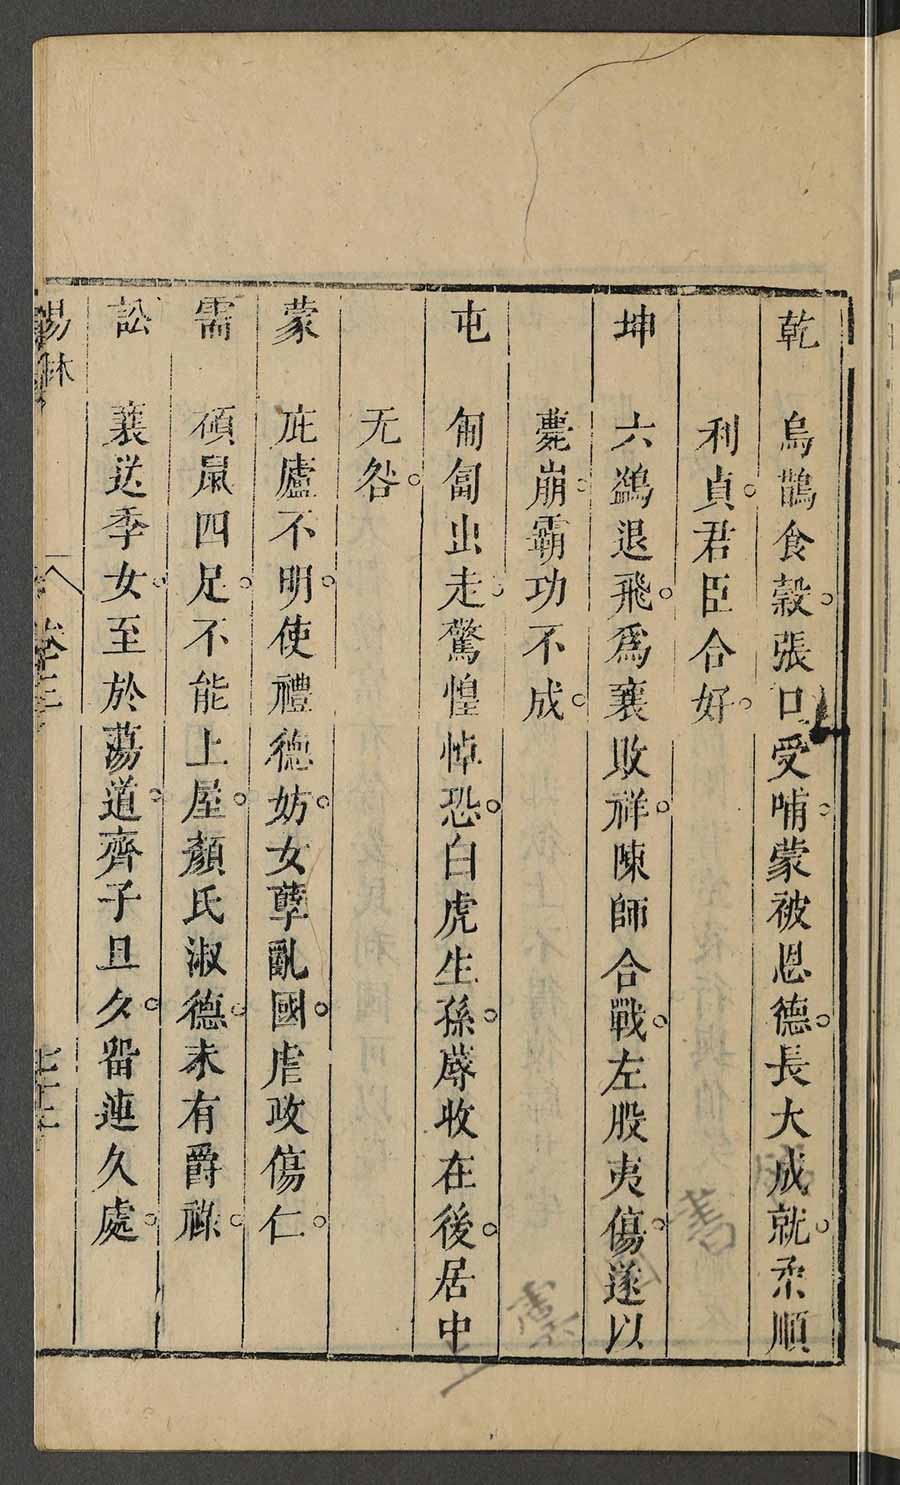 乾　烏鵲食穀。張口受哺。蒙被恩德。長大成就。柔順
利貞。君臣合好。
坤　六鷁退飛。為襄敗祥。陳師合戰。左股夷傷。遂以
薨崩。霸功不成。
屯　匍匐出走。驚惶悼恐。白虎生孫。蓐收在後。居中
无咎。
蒙　庇廬不明。使禮德妨。女孽亂國。虐政傷仁。
需　碩鼠四足。不能上屋。顏氏淑德。未有爵祿。
訟　襄送季女。至於蕩道。齊子旦夕。畱連久處。
易林